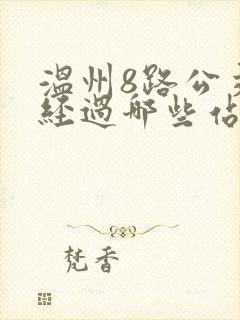 温州8路公交
經過哪些佔
梵香